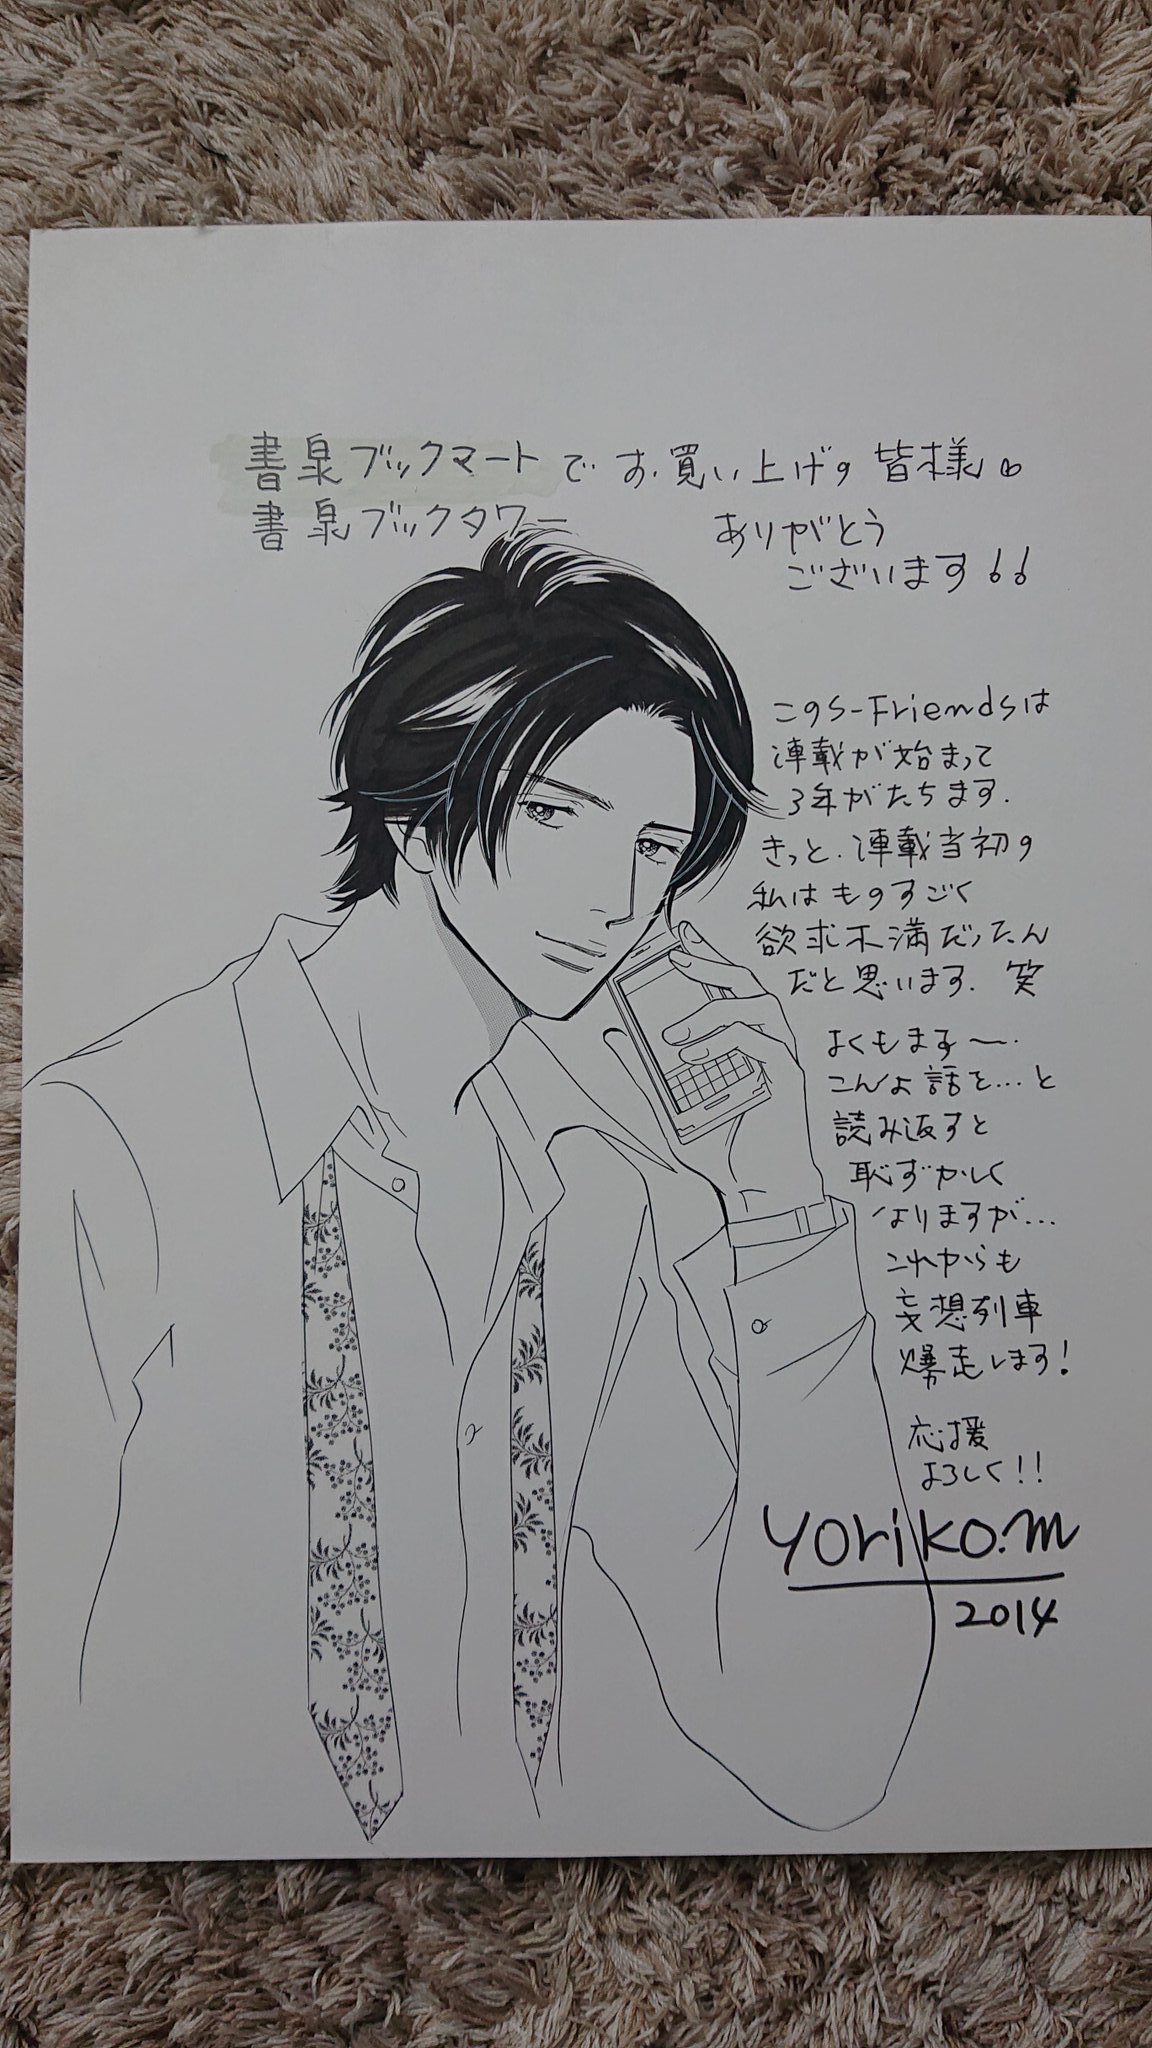 書泉ブックマートでお買い上げの皆様。
書泉ブックタワー
ありがとう
ございます!!
このS-Friendsは
連載が始まって
3年がたちます.
きっと.連載当初の
私はものすごく
欲求不満だったん
だと思います.笑
よくもまぁ〜.
こんな話を…と
読み返すと
恥ずかしく
なりますが…
これからも
妄想列車
爆走します!
応援
よろしく!!
yoriko.m
2014